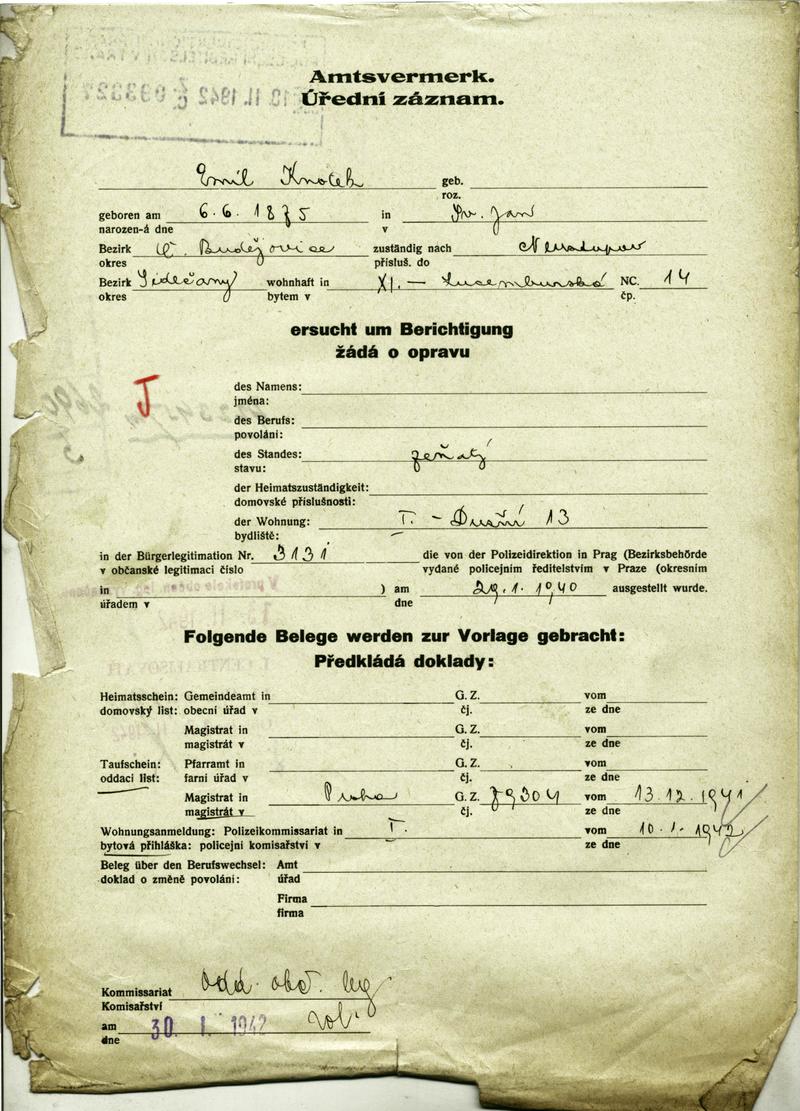 Amtsvermerk.
Úřední záznam.
10. II. 1942
Emil Knotek geb.
roz.
geboren am 6.6.1875 in Sv. Jan
narozen-á dne v
Bezirk Č. Budějovice zuständig nach Neustupov
okres přísluš. do
Bezirk Sedlčany wohnhaft in XI. – Lucemburská NC. 14
okres bytem v čp.
ersucht um Berichtigung
žádá o opravu
J
des Namens:
jména:
des Berufs:
povolání:
des Standes: ženatý
stavu:
der Heimatszuständigkeit:
domovské příslušnosti:
der Wohnung: I. – Dušní 13
bydliště:
in der Bürgerlegitimation Nr. 3131 die von der Polizeidirektion in Prag (Bezirksbehörde
v občanské legitimaci číslo vydané policejním ředitelstvím v Praze (okresním
in ) am 29.1.1940 ausgestellt wurde.
úřadem v dne
Folgende Belege werden zur Vorlage gebracht:
Předkládá doklady:
Heimatsschein: Gemeindeamt in G. Z. vom
domovský list: obecní úřad v čj. ze dne
Magistrat in G. Z. vom
magistrát v čj. ze dne
Taufschein: Pfarramt in G. Z. vom
oddací list: farní úřad v čj. ze dne
Magistrat in Praha G. Z. 79304 vom 13.12.1941
magistrát v čj. ze dne
Wohnungsanmeldung: Polizeikommissariat in I. vom 10.1.1942
bytová přihláška: policejní komisařství v ze dne
Beleg über den Berufswechsel: Amt
doklad o změně povolání: úřad
Firma
firma
Kommissariat odd. obč. leg
Komisařství
am 30. I. 1942
dne